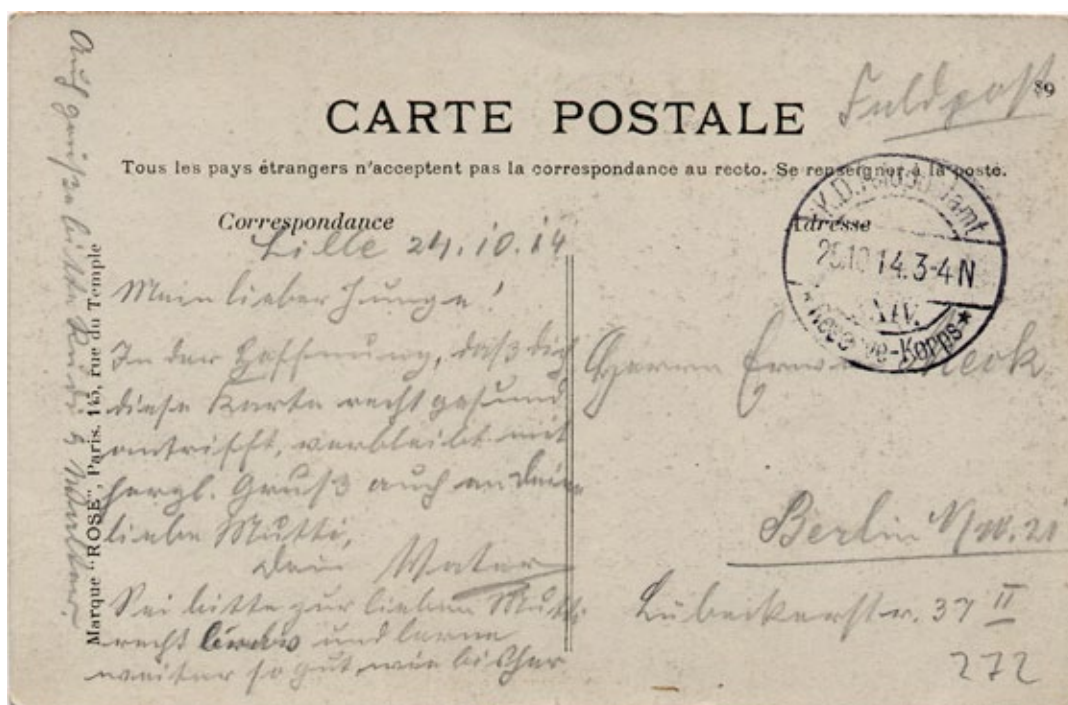 Feldpost
89
CARTE POSTALE
Tous les pays étrangers n'acceptent pas la correspondance au recto. Se renseigner à la poste.
Correspondance
Adresse
Lille 24.10.14
Mein lieber Junge!
In der Hoffnung, daß dich
diese Karte recht gesund
antrifft, verbleibt mit
herzl. Gruß auch an deine
liebe Mutti,
Dein Vater
Sei bitte zur lieben Mutti
recht und lerne
weiter so gut wie bisher
Auch grüße bitte
Marque "ROSE", Paris, 145, rue du Temple
K.D. Feldpostamt
25.10.14. 3-4 N
XIV.
* Reserve-Korps *
Herrn
Berlin NW. 21
Lübeckerstr. 37 II
272